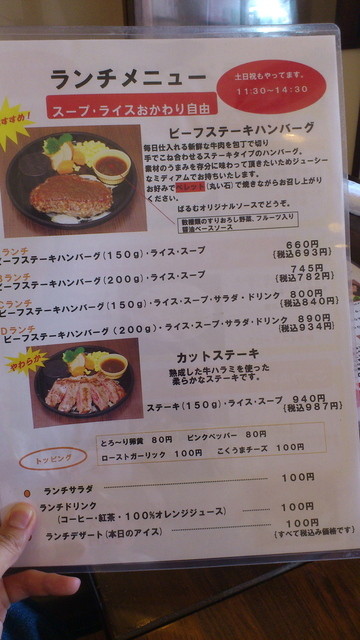 ランチメニュー
土日祝もやってます。
11:30~14:30
スープ・ライスおかわり自由
すすめ!
ビーフステーキハンバーグ
毎日仕入れる新鮮な牛肉を包丁で切り
手でこね合わせるステーキタイプのハンバーグ。
素材のうまみを存分に味わって頂きたいためジューシー
なミディアムでお持ちいたします。
お好みでペレット(丸い石)で焼きながらお召し上がり
ください。
ぱるむオリジナルソースでどうぞ。
数種類のすりおろし野菜、フルーツ入り
醤油ベースソース
ランチ
ビーフステーキハンバーグ(150g)・ライス・スープ 660円
(税込693円)
Bランチ
ビーフステーキハンバーグ(200g)・ライス・スープ 745円
(税込782円)
Cランチ
ビーフステーキハンバーグ(150g)・ライス・スープ・サラダ・ドリンク 800円
(税込840円)
Dランチ
ビーフステーキハンバーグ(200g)・ライス・スープ・サラダ・ドリンク 890円
(税込934円)
やわらか
カットステーキ
熟成した牛ハラミを使った
柔らかなステーキです。
ステーキ(150g)・ライス・スープ 940円
(税込987円)
トッピング
とろ~り卵黄 80円 ピンクペッパー 80円
ローストガーリック 100円 こくうまチーズ 100円
ランチサラダ 100円
ランチドリンク
(コーヒー・紅茶・100%オレンジジュース) 100円
ランチデザート(本日のアイス) 100円
(すべて税込み価格です)